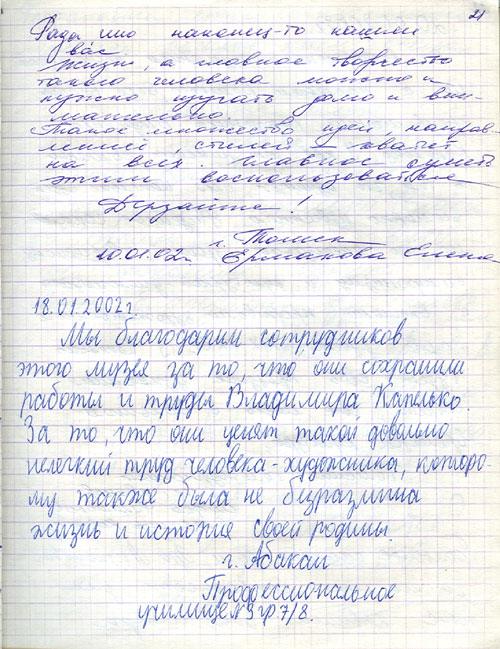 21
Рады что наконец-то нашли
вас
Жизнь, а главное творчество
такого человека можно и
нужно изучать долго и вни-
мательно.
Такое множество идей, направ-
лений, стилей – хватит
на всех. Главное суметь
этим воспользоваться
Дерзайте!
г. Томск
10.01.02г. Ермакова Елена
18.01.2002г.
Мы благодарим сотрудников
этого музея за то, что они сохранили
работы и труды Владимира Капелько
За то, что они ценят такой довольно
нелегкий труд человека-художника, которо-
му также была не безразлична
жизнь и история своей родины.
г. Абакан
Профессиональное
училище №9 гр 7/8.